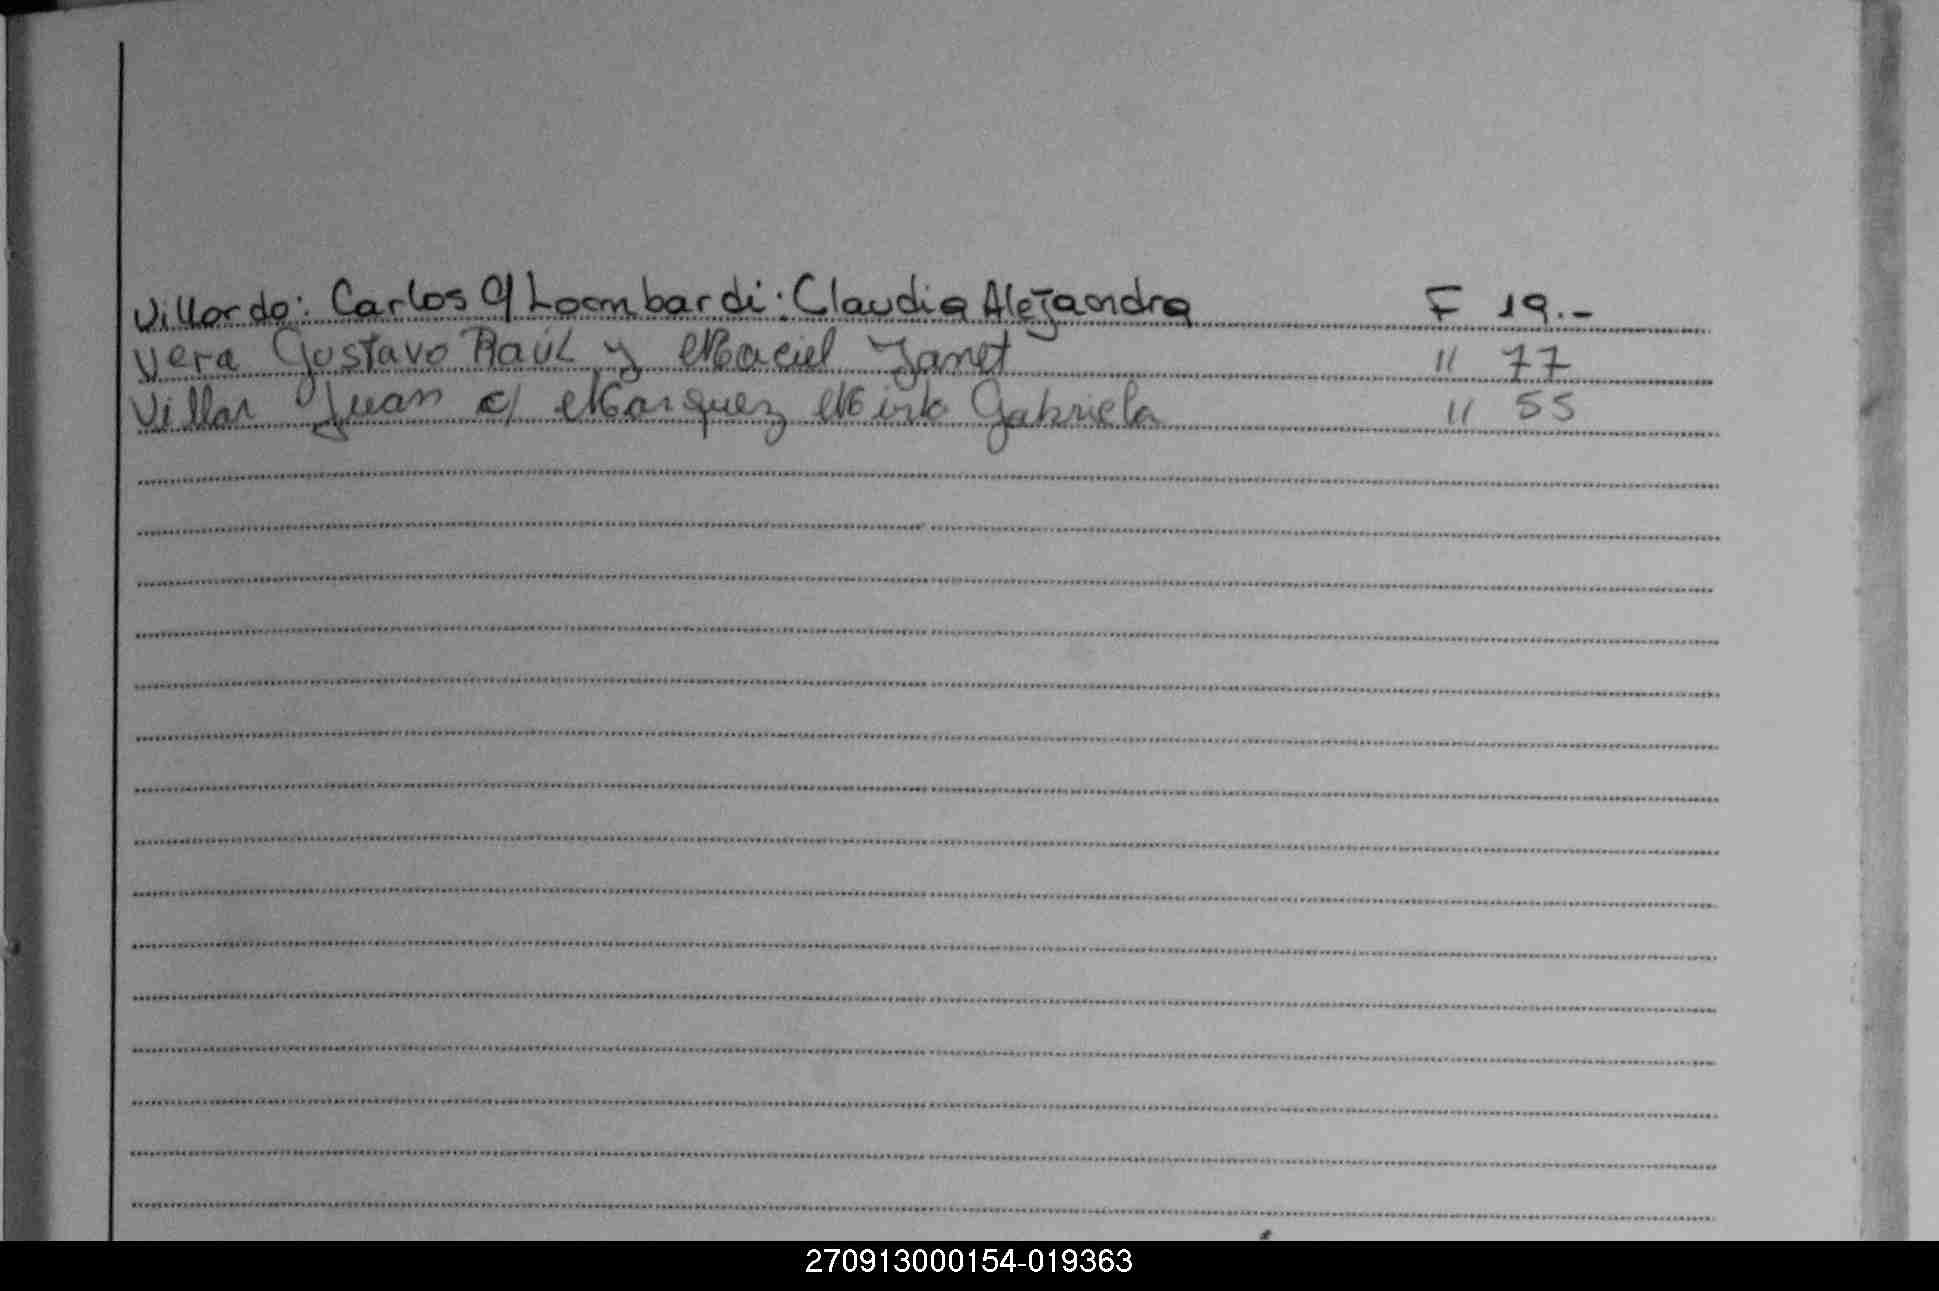 Villordo: Carlos C/ Lombardi: Claudia Alejandra F 19.-
Vera Gustavo Raúl y Maciel Janet " 77
Villar Juan c/ Marquez Mirta Gabriela " 55
270913000154-019363